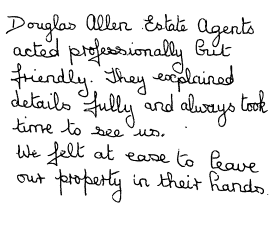 Douglas Allen Estate Agents
acted professionally but
friendly. They explained
details fully and always took
time to see us.
We felt at ease to leave
our property in their hands.